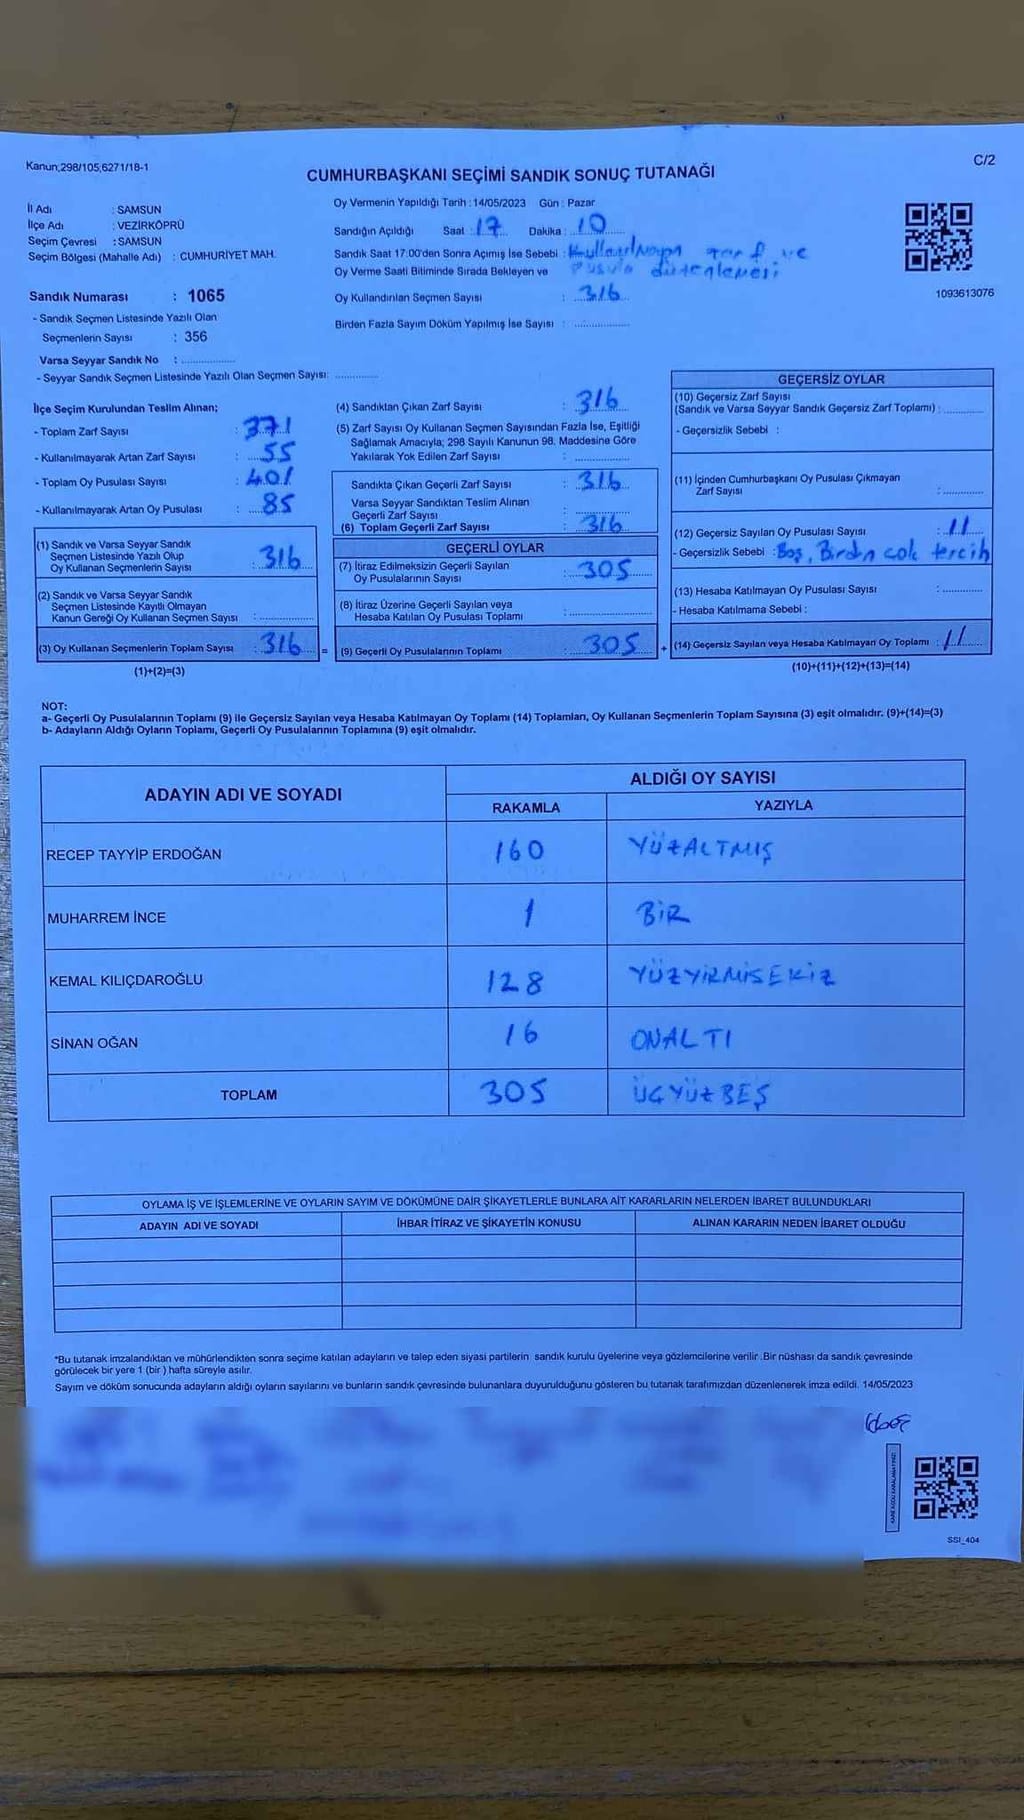 Kanun;298/105,6271/18-1
C/2
CUMHURBAŞKANI SEÇİMİ SANDIK SONUÇ TUTANAĞI
İl Adı : SAMSUN
İlçe Adı : VEZİRKÖPRÜ
Seçim Çevresi : SAMSUN
Seçim Bölgesi (Mahalle Adı) : CUMHURİYET MAH.
Oy Vermenin Yapıldığı Tarih : 14/05/2023 Gün : Pazar
Sandığın Açıldığı Saat : 17 Dakika : 10
Sandık Saat 17:00'den Sonra Açımış İse Sebebi : Kullanılmayan zarf ve
Oy Verme Saati Bitiminde Sırada Bekleyen ve pusula düzenlemesi
Oy Kullandırılan Seçmen Sayısı : 316
Birden Fazla Sayım Döküm Yapılmış İse Sayısı :
1093613076
Sandık Numarası : 1065
- Sandık Seçmen Listesinde Yazılı Olan
Seçmenlerin Sayısı : 356
Varsa Seyyar Sandık No :
- Seyyar Sandık Seçmen Listesinde Yazılı Olan Seçmen Sayısı:
İlçe Seçim Kurulundan Teslim Alınan;
- Toplam Zarf Sayısı : 371
- Kullanılmayarak Artan Zarf Sayısı : 55
- Toplam Oy Pusulası Sayısı : 401
- Kullanılmayarak Artan Oy Pusulası : 85
(1) Sandık ve Varsa Seyyar Sandık
Seçmen Listesinde Yazılı Olup
Oy Kullanan Seçmenlerin Sayısı : 316
(2) Sandık ve Varsa Seyyar Sandık
Seçmen Listesinde Kayıtlı Olmayan
Kanun Gereği Oy Kullanan Seçmen Sayısı :
(3) Oy Kullanan Seçmenlerin Toplam Sayısı : 316 =
(1)+(2)=(3)
(4) Sandıktan Çıkan Zarf Sayısı : 316
(5) Zarf Sayısı Oy Kullanan Seçmen Sayısından Fazla İse, Eşitliği
Sağlamak Amacıyla; 298 Sayılı Kanunun 98. Maddesine Göre
Yakılarak Yok Edilen Zarf Sayısı :
Sandıkta Çıkan Geçerli Zarf Sayısı : 316
Varsa Seyyar Sandıktan Teslim Alınan
Geçerli Zarf Sayısı :
(6) Toplam Geçerli Zarf Sayısı : 316
GEÇERLİ OYLAR
(7) İtiraz Edilmeksizin Geçerli Sayılan
Oy Pusulalarının Sayısı : 305
(8) İtiraz Üzerine Geçerli Sayılan veya
Hesaba Katılan Oy Pusulası Toplamı :
(9) Geçerli Oy Pusulalarının Toplamı : 305 +
GEÇERSİZ OYLAR
(10) Geçersiz Zarf Sayısı
(Sandık ve Varsa Seyyar Sandık Geçersiz Zarf Toplamı) :
- Geçersizlik Sebebi :
(11) İçinden Cumhurbaşkanı Oy Pusulası Çıkmayan
Zarf Sayısı :
(12) Geçersiz Sayılan Oy Pusulası Sayısı : 11
- Geçersizlik Sebebi : Boş, Birdn cok tercih
(13) Hesaba Katılmayan Oy Pusulası Sayısı :
- Hesaba Katılmama Sebebi :
(14) Geçersiz Sayılan veya Hesaba Katılmayan Oy Toplamı : 11
(10)+(11)+(12)+(13)=(14)
NOT:
a- Geçerli Oy Pusulalarının Toplamı (9) ile Geçersiz Sayılan veya Hesaba Katılmayan Oy Toplamı (14) Toplamları, Oy Kullanan Seçmenlerin Toplam Sayısına (3) eşit olmalıdır. (9)+(14)=(3)
b- Adayların Aldığı Oyların Toplamı, Geçerli Oy Pusulalarının Toplamına (9) eşit olmalıdır.
ADAYIN ADI VE SOYADI
ALDIĞI OY SAYISI
RAKAMLA YAZIYLA
RECEP TAYYİP ERDOĞAN 160 YÜZALTMIŞ
MUHARREM İNCE 1 BİR
KEMAL KILIÇDAROĞLU 128 YÜZYİRMİSEKİZ
SİNAN OĞAN 16 ONALTI
TOPLAM 305 ÜÇYÜZBEŞ
OYLAMA İŞ VE İŞLEMLERİNE VE OYLARIN SAYIM VE DÖKÜMÜNE DAİR ŞİKAYETLERLE BUNLARA AİT KARARLARIN NELERDEN İBARET BULUNDUKLARI
ADAYIN ADI VE SOYADI İHBAR İTİRAZ VE ŞİKAYETİN KONUSU ALINAN KARARIN NEDEN İBARET OLDUĞU
*Bu tutanak imzalandıktan ve mühürlendikten sonra seçime katılan adayların ve talep eden siyasi partilerin sandık kurulu üyelerine veya gözlemcilerine verilir .Bir nüshası da sandık çevresinde
görülecek bir yere 1 (bir ) hafta süreyle asılır.
Sayım ve döküm sonucunda adayların aldığı oyların sayılarını ve bunların sandık çevresinde bulunanlara duyurulduğunu gösteren bu tutanak tarafımızdan düzenlenerek imza edildi. 14/05/2023
SSI_404